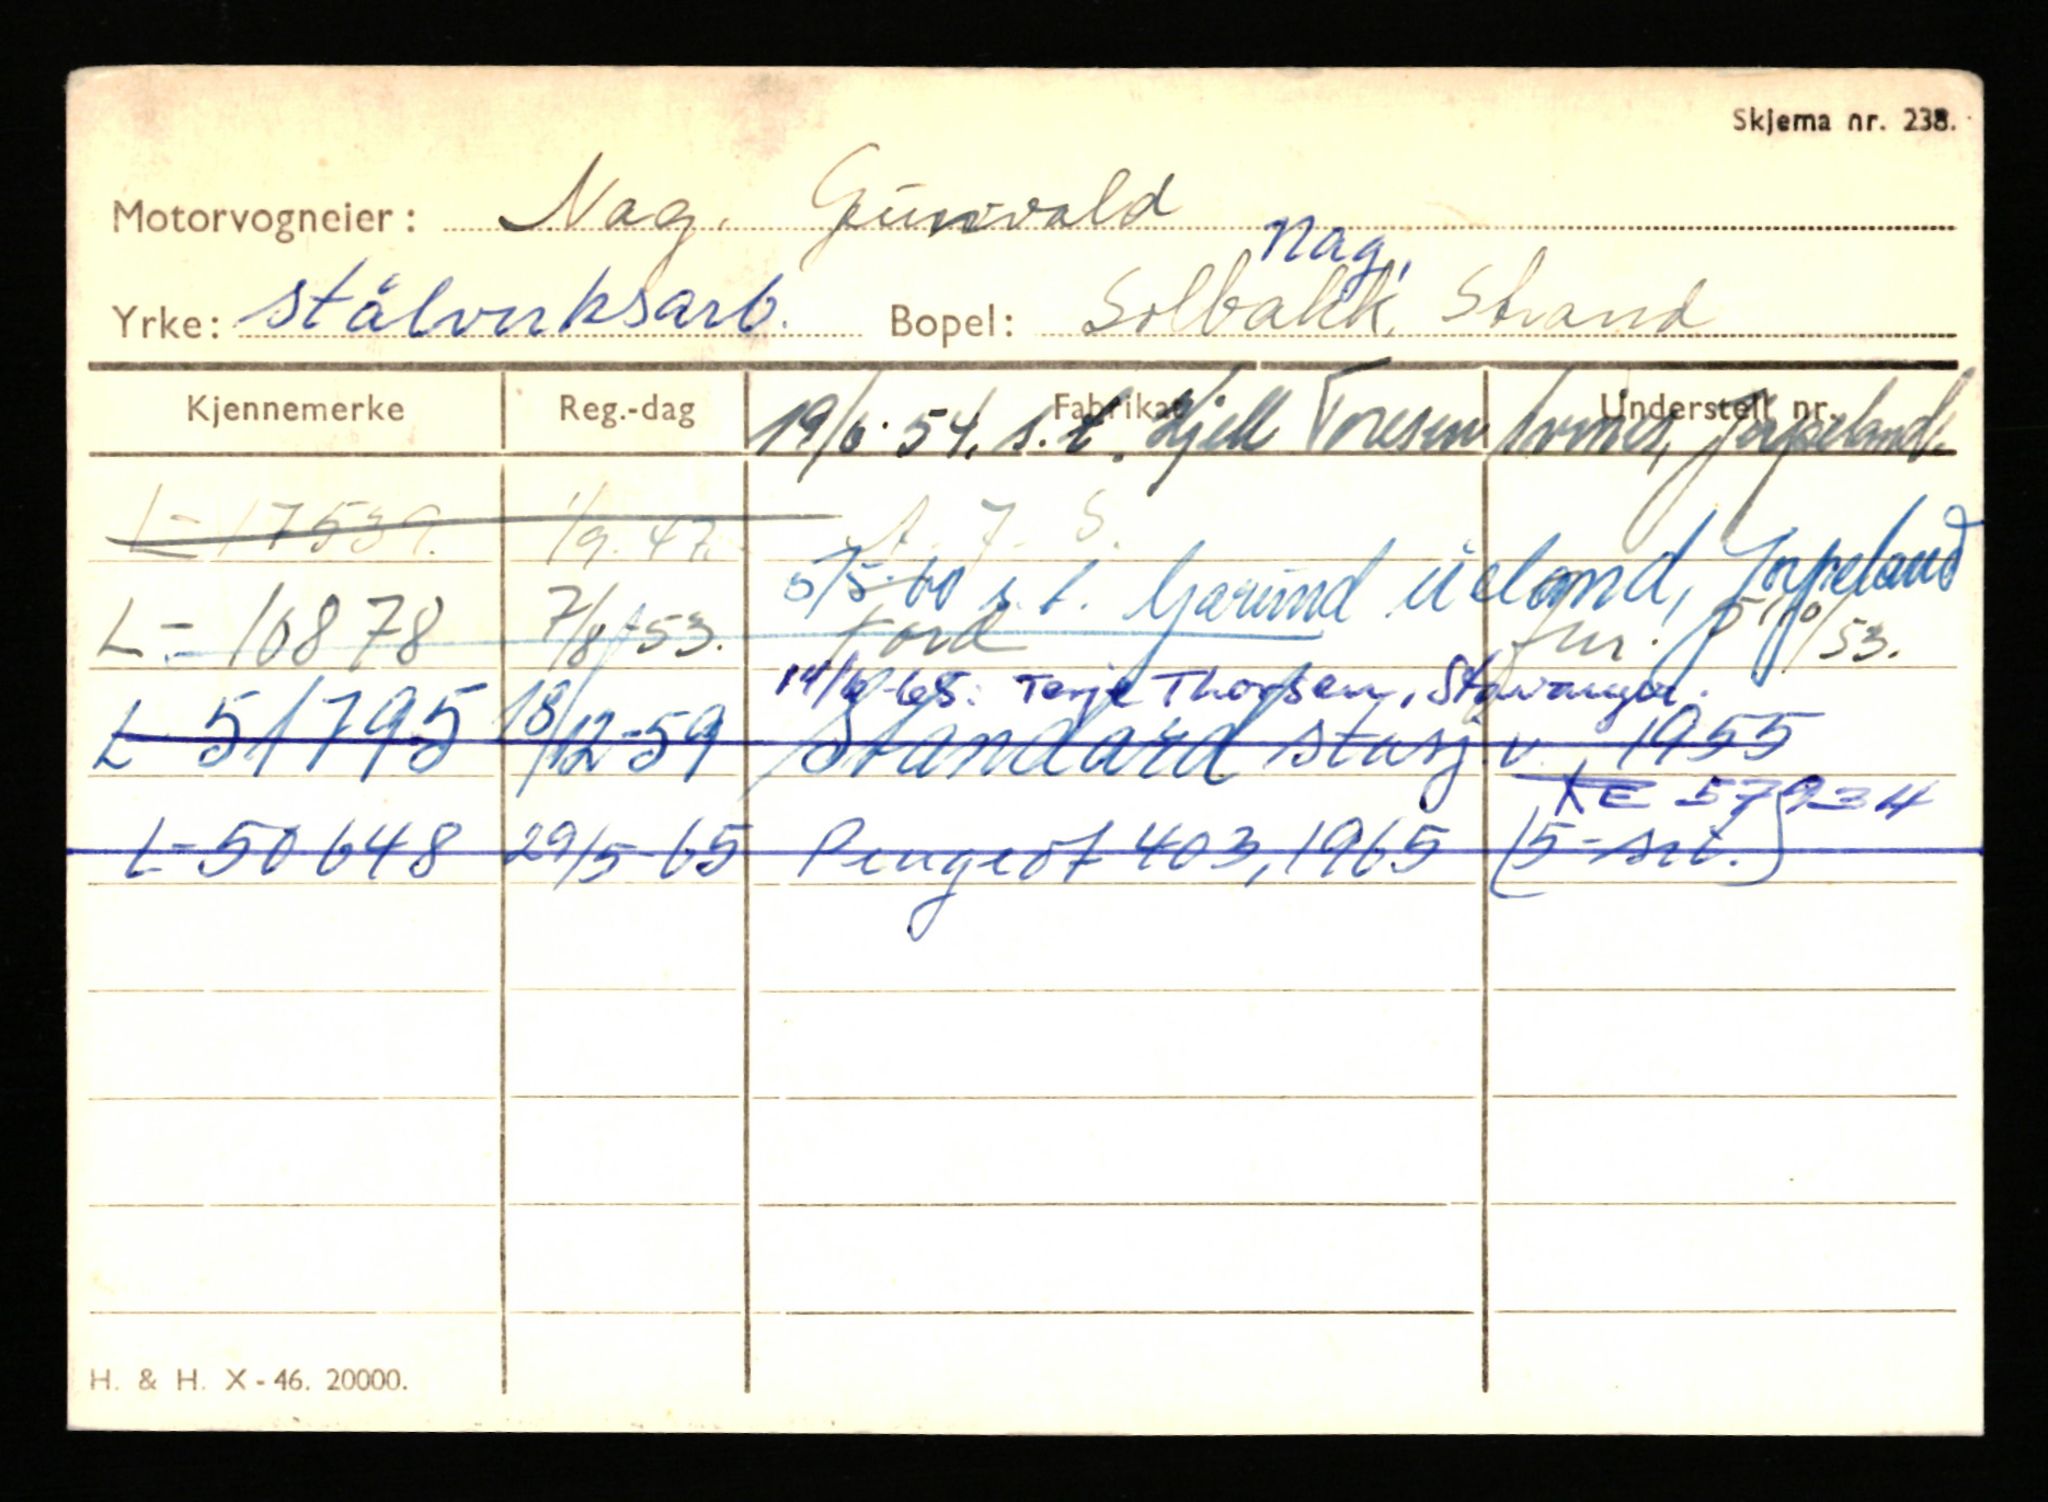 Skjema nr. 238.
Motorvogneier: Nag, Gunvald
Nag,
Yrke: stålverksarb. Bopel: Solbakk, Strand
Kjennemerke Reg.-dag Fabrikat Understell nr.
19/6-54. s.t. Kjell Toresen Jørpeland.
L-17539. 1/9.47. A. J. S.
5/5-60 s.t. Garund Ueland, Jørpeland
L-10878 7/8-53. Ford fur. 5/10/53.
14/6-65: Terje Thorsen, Stavanger.
L-51795 18/12-59 Standard stasj.v. 1955
XE 57934
L-50648 29/5-65 Peugeot 403, 1965 (5-sit.)
H. & H. X-46. 20000.